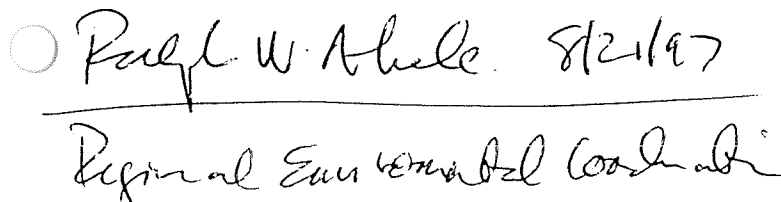 Ralph W. Abele 8/21/97
Regional Environmental Coordinator